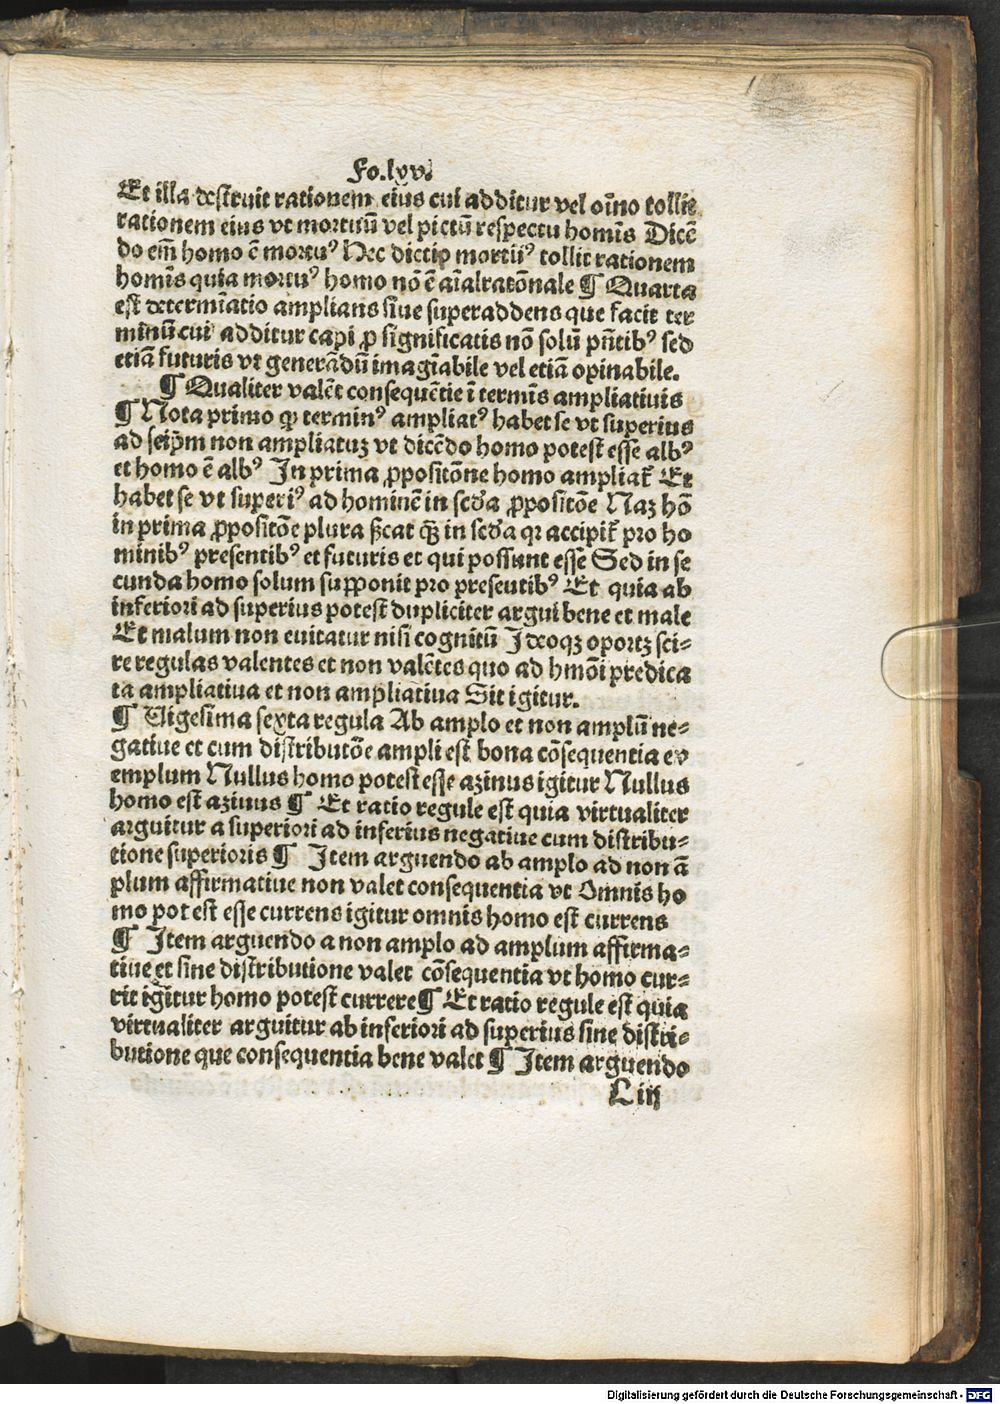 Fo.lxv.
Et illa destruit rationem eius cui additur vel oīno tollit
rationem eius vt mortuū vel pictū respectu homīs Dicē
do em̄ homo ē mortuꝰ Nec dictio mortuꝰ tollit rationem
homīs quia mortuꝰ homo nō ē aīalratōnale ¶ Quarta
est determīatio amplians siue superaddens que facit ter
minū cui additur capi ꝓ significatis nō solū pn̄tibꝰ sed
etiā futuris vt generādū imagīabile vel etiā opinabile.
¶ Qualiter valēt consequētie ī termīs ampliatiuis
¶ Nota primo ꝙ terminꝰ ampliatꝰ habet se vt superius
ad seip̄m non ampliatuꝫ vt dicēdo homo potest esse albꝰ
et homo ē albꝰ In prima ꝓpositōne homo ampliat᷑ Et
habet se vt superiꝰ ad hominē in scd̄a ꝓpositōe Naꝫ hō
in prima ꝓpositōe plura ſicat ꝙ̄ in scd̄a qꝛ accipit᷑ pro ho
minibꝰ presentibꝰ et futuris et qui possunt esse Sed in se
cunda homo solum supponit pro presentibꝰ Et quia ab
inferiori ad superius potest dupliciter argui bene et male
Et malum non euitatur nisi cognitū Ideoqꝫ oportꝫ sci⸗
re regulas valentes et non valētes quo ad hmōi predica
ta ampliatiua et non ampliatiua Sit igitur.
¶ Vigesima sexta regula Ab amplo et non amplū ne⸗
gatiue et cum distributōe ampli est bona cōsequentia ex
emplum Nullus homo potest esse azinus igitur Nullus
homo est azinus ¶ Et ratio regule est quia virtualiter
arguitur a superiori ad inferius negatiue cum distribu⸗
tione superioris ¶ Item arguendo ab amplo ad non ā
plum affirmatiue non valet consequentia vt Omnis ho
mo pot est esse currens igitur omnis homo est currens
¶ Item arguendo a non amplo ad amplum affirma⸗
tiue et sine distributione valet cōsequentia vt homo cur⸗
rit igitur homo potest currere ¶ Et ratio regule est quia
virtualiter arguitur ab inferiori ad superius sine distri⸗
butione que consequentia bene valet ¶ Item arguendo
L iij
Digitalisierung gefördert durch die Deutsche Forschungsgemeinschaft - DFG